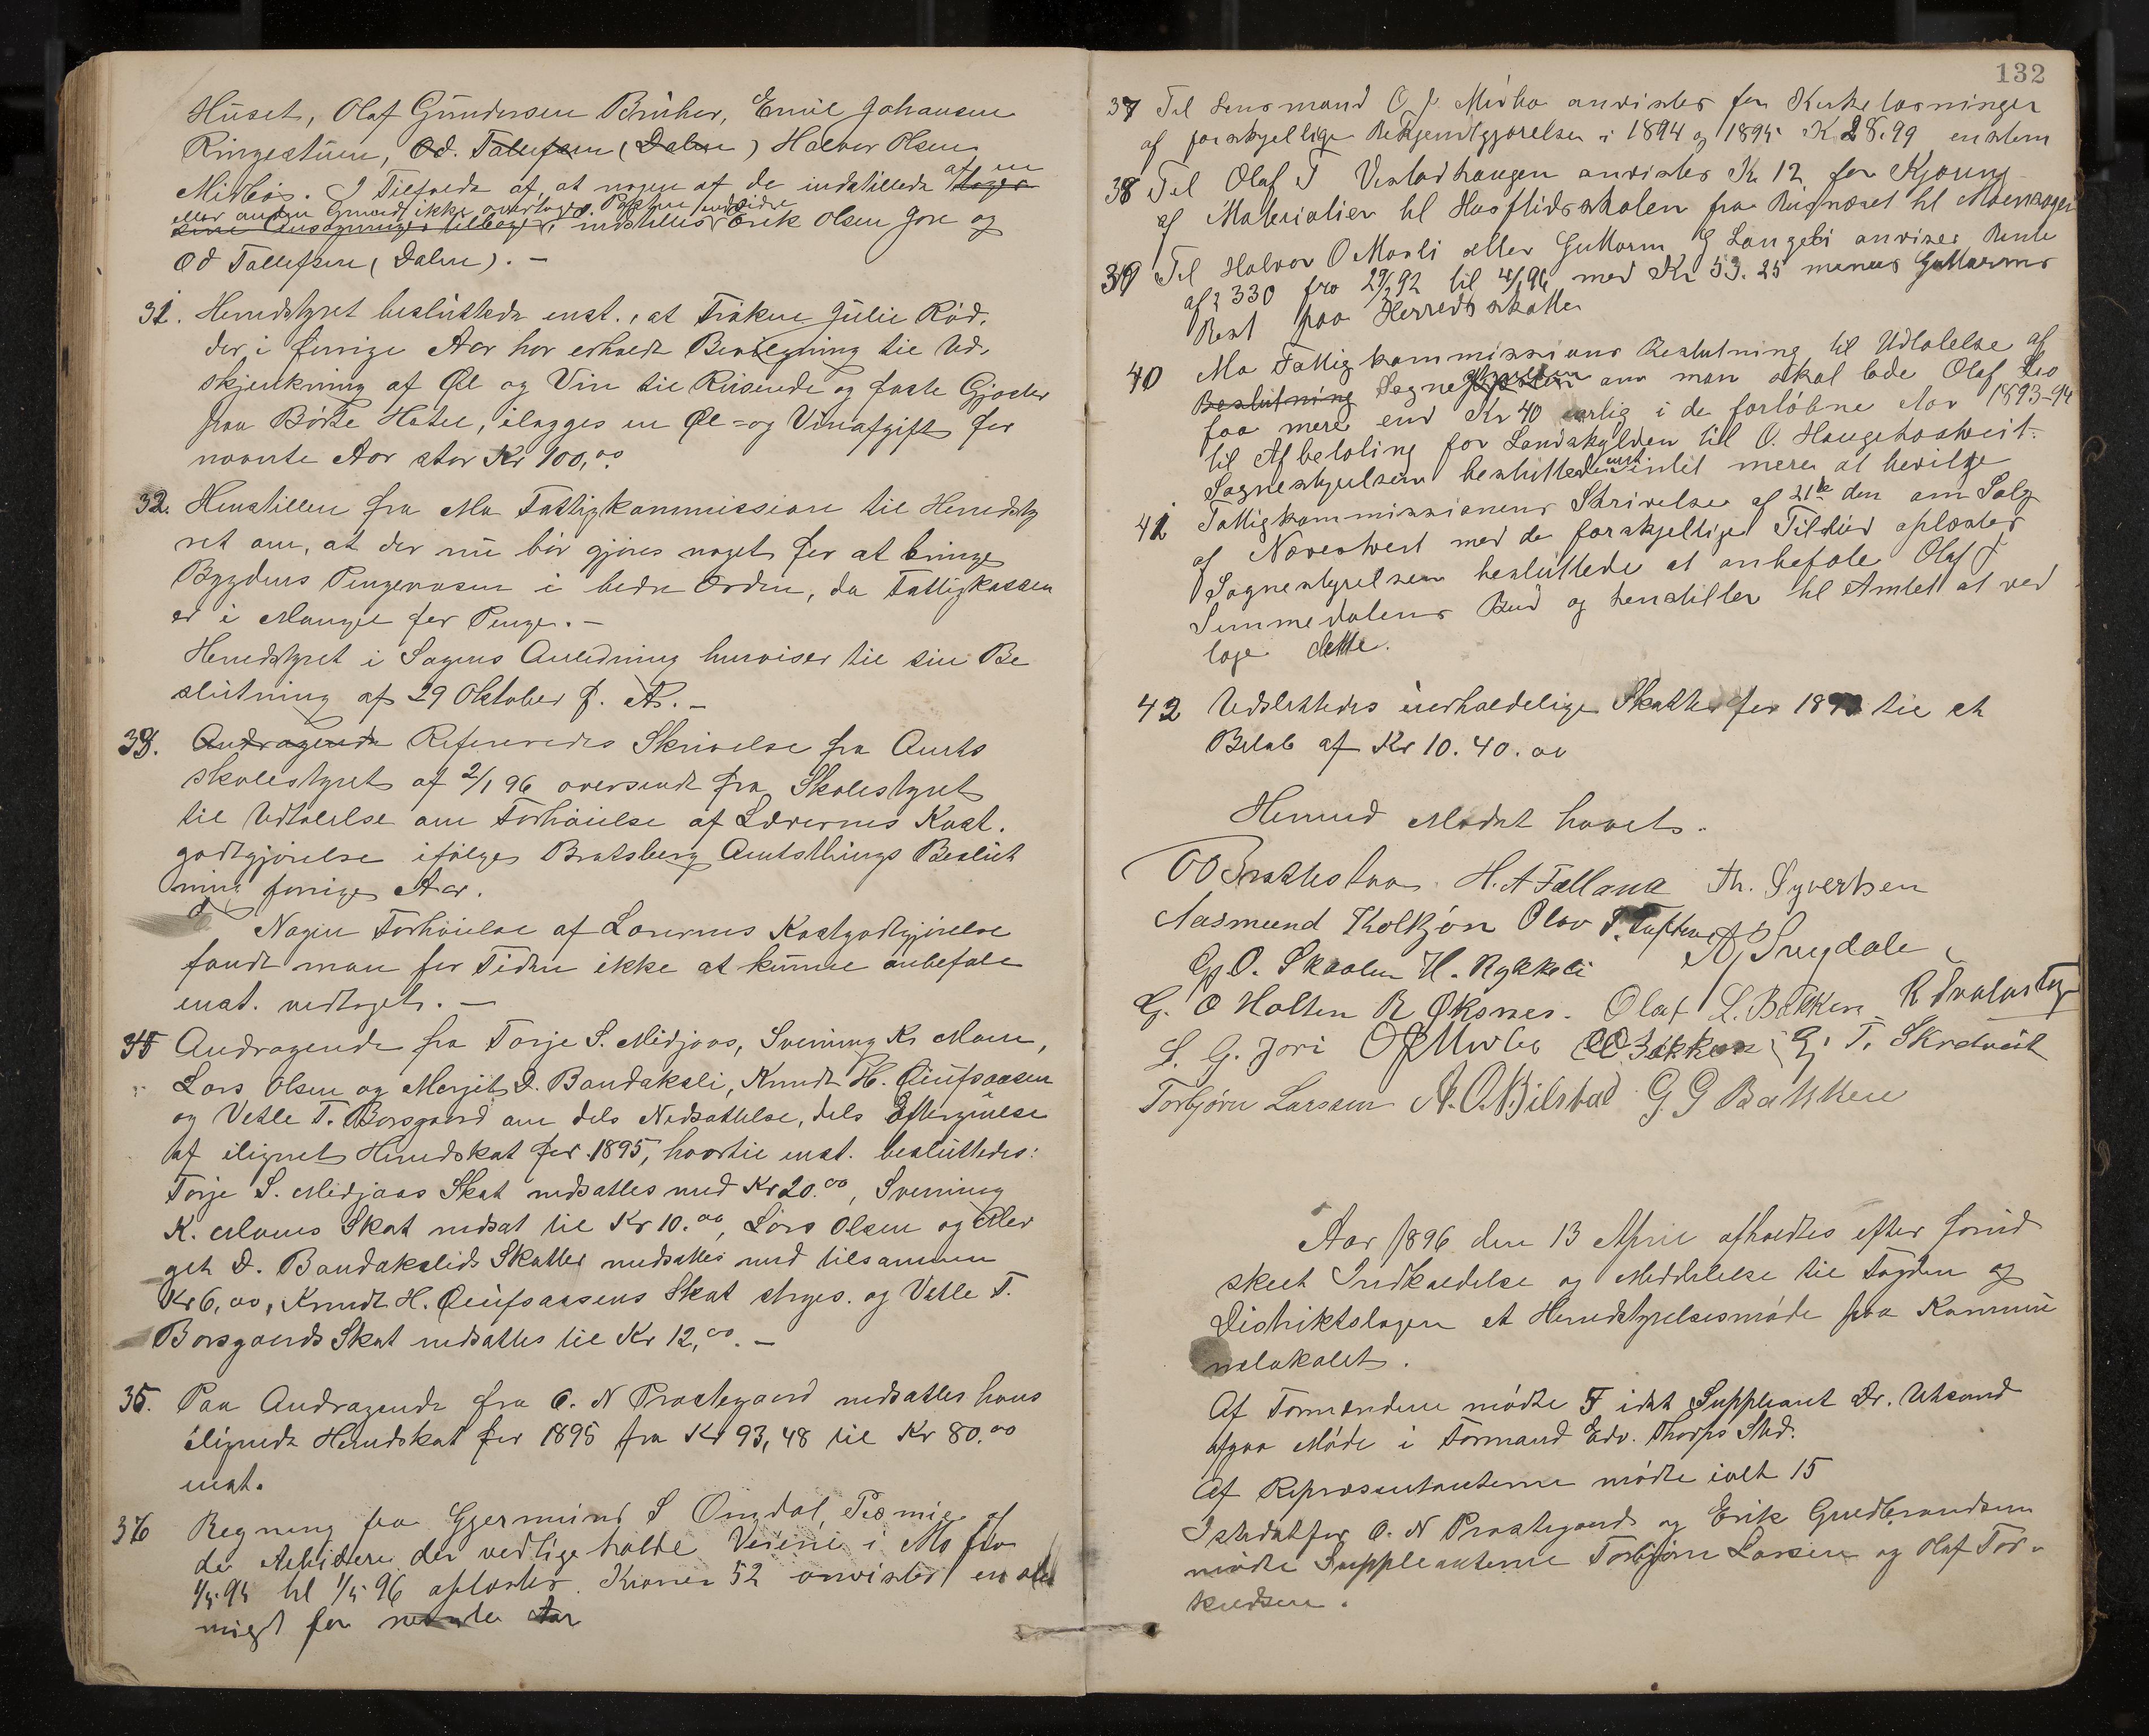 Huset, Olaf Gundersen Bruher, Emil Johansen
Ringestuen, Od. Tallefsen (Dalen) Halvor Olsen
Midbøs. I Tilfælde af, at nogen af de indstillede af en tager
eller anden Grund ikke overtager Posten, endvidere
sine Ansøgninger tilbage, indstilles Erik Olsen Jore og
Od Tallefsen (Dalen). —
31. Herredstyret besluttede enst., at Frøken Julie Rød,
der i forrige Aar har erholdt Bevilgning til Ud-
skjenkning af Øl og Vin til Reisende og faste Gjæster
paa Børte Hotel, ilægges en Øl- og Vinafgift for
nævnte Aar stor Kr 100,00
32. Henstillen fra Mo Fattigkommission til Herredsty
ret om, at der nu bør gjøres noget for at bringe
Bygdens Pengevæsen i bedre Orden, da Fattigkassen
er i Mangel for Penge. —
Herredstyret i Sagens Anledning henviser til sin Be
slutning af 29 Oktober f. A. —
33. Andragende Refereredes Skrivelse fra Amts
skolestyret af 2/1 96 oversendt fra Skolestyret
til Udtalelse om Forhøielse af Lærernes Kost-
godtgjørelse ifølge Bratsberg Amtsthings Beslut
ning forrige Aar.
Nogen Forhøielse af Lærernes Kostgodtgjørelse
fandt man for Tiden ikke at kunne anbefale
enst. vedtaget. —
34 Andragende fra Torje S. Midjaas, Svening K. Moen,
Lars Olsen og Margit D. Bandaksli, Knudt H.
og Vetle T. Borsgaard om dels Nedsættelse, dels Eftergivelse
af ilignet Herredskat for 1895, hvortil enst. besluttedes:
Torje S. Midjaas Skat nedsattes med Kr 20.00, Svening
K. Moens Skat nedsat til Kr 10.00, Lars Olsen og Mar
git D. Bandakslids Skatter nedsattes med tilsammen
Kr 6,00, Knudt H. Skat stryges. og Vetle T.
Borsgaards Skat nedsattes til Kr 12,00. —
35. Paa Andragende fra O. N Prestegaard nedsattes hans
ilignede Herredskat for 1895 fra Kr 93,48 til Kr 80.00
enst.
36 Regning fra Gjermund S Omdal, Premie af
de Arbeidere der vedligeholdt Veiene i Mo fra
1/5 95 til 1/5 96 oplæstes. Kroner 52 anvistes enstem
migt for Aar
132
37 Til Lensmand O J. Midbø anvistes for Kirkelæsninger
af forskjellige Bekjendtgjørelser i 1894 og 1895 K 28.99 enstem
38 Til Olaf T Vistadhaugen anvistes Kr 12 for Kjøring
af Materialier til Husflidsskolen fra til
39 Til Halvor O Mosli eller Guttorm G Langeli anvises Rente
af 330 fra 29/2 92 til 4/1 96 med Kr 53.25 minus Guttorms
Rest paa Herredsskatten
40 Mo Fattigkommissions Beslutning til Udtalelse af
Beslutning Sognestyrelsen om man skal lade Olaf
faa mere end Kr 40 aarlig i de forløbne Aar 1893-94
til Afbetaling for Landskylden til O. Haugetostveit.
Sognestyrelsen besluttede enst intet mere at bevilge
41 Fattigkommissionens Skrivelse af 21de den om Salg
af Nævestveit med de forskjellige Tilbud oplæstes
Sognestyrelsen besluttede at anbefale Olaf J
Summedalens Bud og henstiller til Amtet at ved
tage dette.
42 Vedsættedes uerholdelige Skatter for 189 til et
Beløb af Kr 10.40.00
Hermed Mødet hævet.
O O Brattestaa. H. A Felland Th. Syvertsen
Aasmund Kolkjøn Olav T. Tufteen A Smydale
G. O. Skaalen H. Nykkeli
G. O Holten R Øksnes. Olaf L. Bakken R Dvalastog
L. G. Jori O J Midbø O O Bakken G. T. Skredveit
Torbjørn Larsen A. O. Bilstad G. G Bakken
Aar 1896 den 13 April afholdtes efter forud
skeet Indkaldelse og Meddelelse til Fogden og
Distriktslægen et Herredstyrelsesmøde paa Kommu
nelokalet.
Af Formændene mødte 5 idet Suppleant Dr. Utsond
afgav Møde i Formand Edv. Thorps Sted.
Af Repræsentanterne mødte ialt 15
Istedetfor O. N Prestegaard og Erik Gudbrandsen
mødte Suppleanterne Torbjørn Larsen og Olaf Tor-
kildsen.